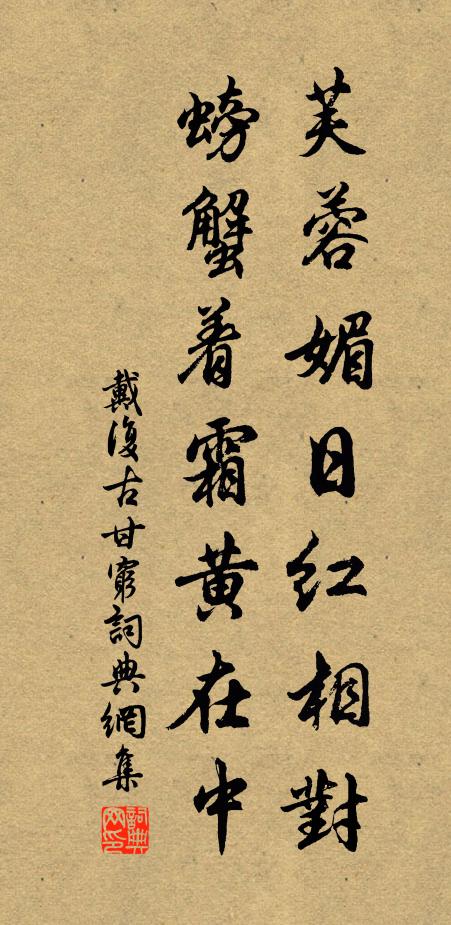 芙蓉媚日红相對
螃蟹着霜黄在中
戴復古甘窮詞典網集
詞典网印